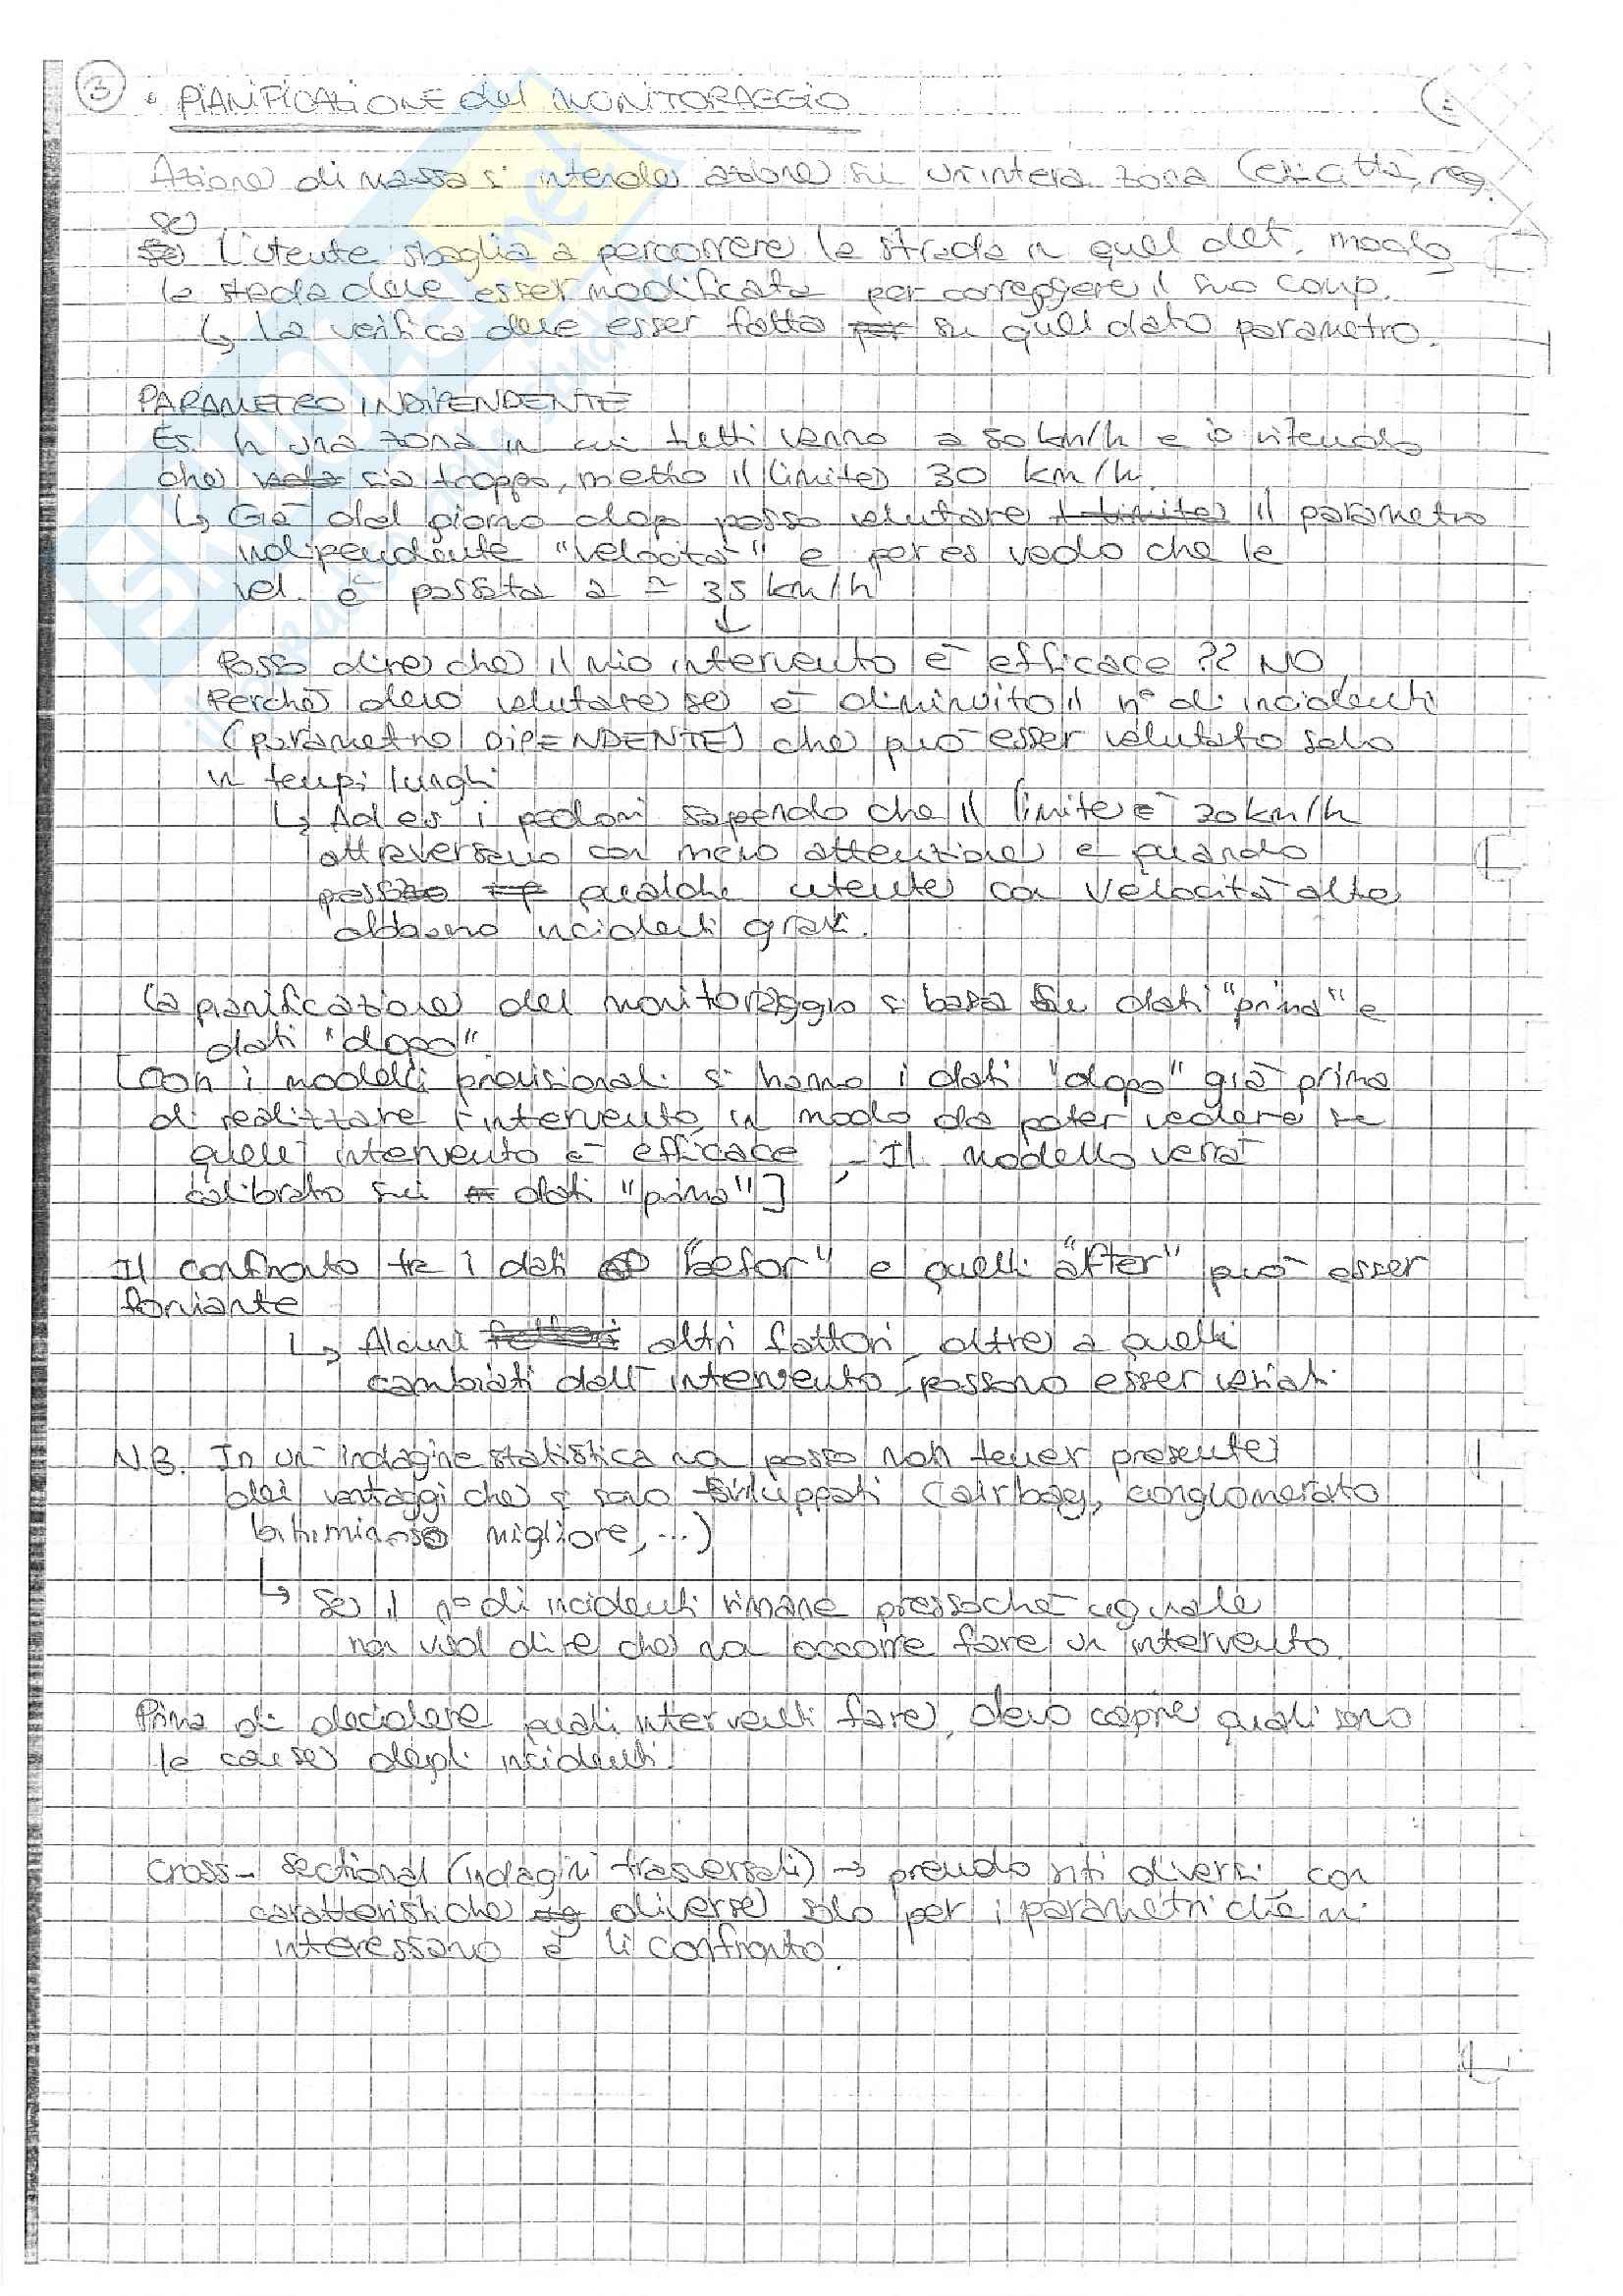 3 • PIANIFICAZIONE del MONITORAGGIO
Azione di massa si intende azione su un'intera zona (es: città, reg.
se
se L'utente sbaglia a percorrere la strada in quel det. modo
la strada deve esser modificata per correggere il suo comp.
↳ La verifica deve esser fatta per su quel dato parametro.
PARAMETRO INDIPENDENTE
Es. In una zona in cui tutti vanno a 50 km/h e io ritenendo
che sia troppo, metto il limite 30 km/h.
↳ Già dal giorno dopo posso valutare il limite il parametro
indipendente "velocità" e per es vedo che la
vel. è passata a ≃ 35 km/h
↓
Posso dire che il mio intervento è efficace ?? NO,
Perchè devo valutare se è diminuito il n° di incidenti
(parametro DIPENDENTE) che può esser valutato solo
in tempi lunghi
↳ Ad es i pedoni sapendo che il limite è 30 km/h
attraversano con meno attenzione e quando
passano qualche utente con velocità alta
abbiamo incidenti gravi.
La pianificazione del monitoraggio si basa su dati "prima" e
dati "dopo".
[Con i modelli previsionali si hanno i dati "dopo" già prima
di realizzare l'intervento, in modo da poter vedere se
quell'intervento è efficace. Il modello verrà
calibrato sui dati "prima"]
Il confronto tra i dati "befor" e quelli "after" può esser
forviante
↳ Alcuni fattori altri fattori, oltre a quelli
cambiati dall'intervento, possono esser variati.
N.B. In un'indagine statistica non posso non tener presente
dei vantaggi che si sono sviluppati (airbag, conglomerato
bituminoso migliore, ...)
↳ Se il n° di incidenti rimane pressochè uguale
non vuol dire che non occorre fare un intervento.
Prima di decidere quali interventi fare, devo capire quali sono
le cause degli incidenti.
Cross-sectional (indagini trasversali) → prendo siti diversi con
caratteristiche diverse solo per i parametri che mi
interessano e li confronto.